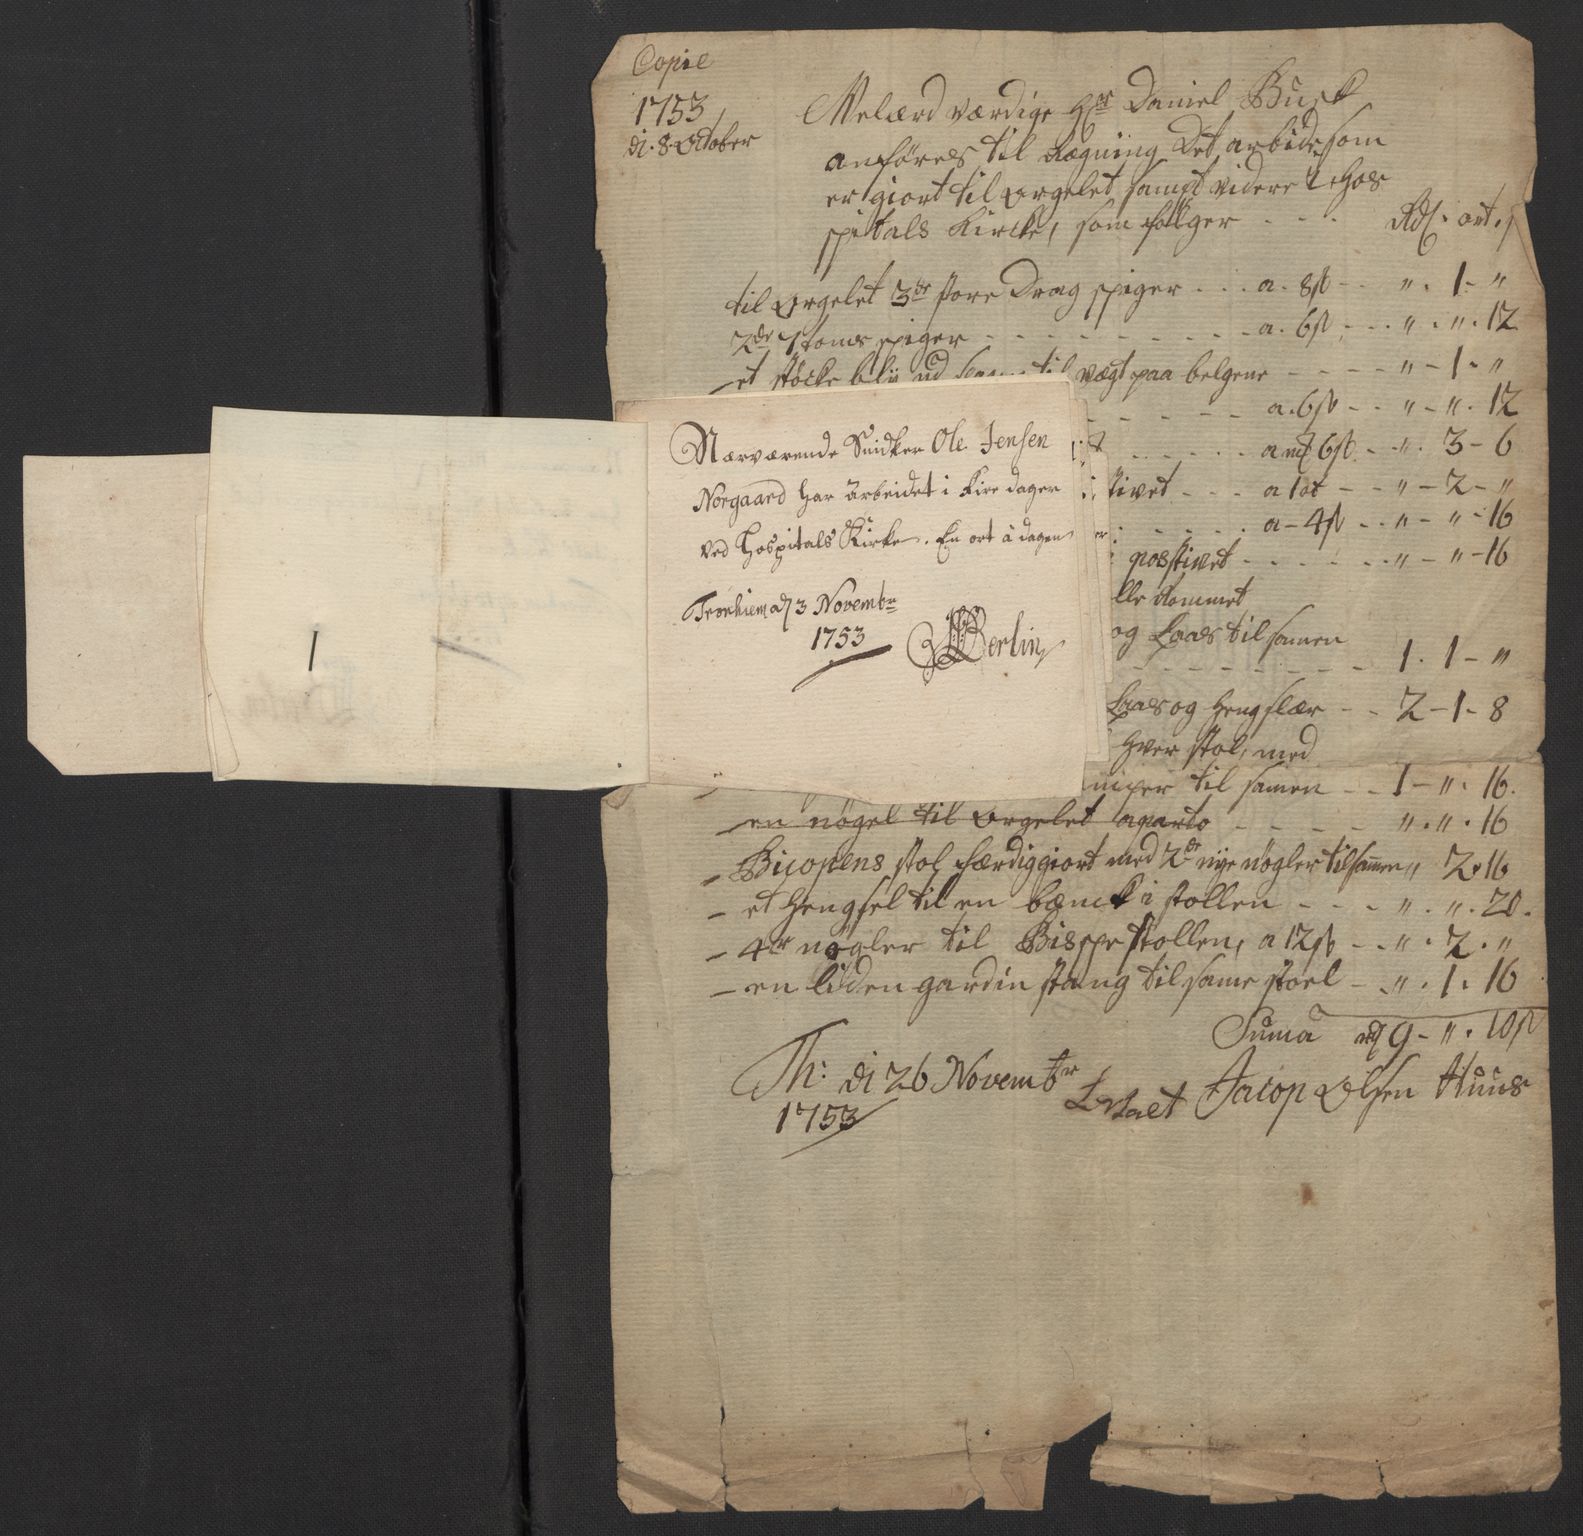 Copie
1753
di. 8 October
Velærdværdige Hr Daniel Busk
anføres til Rægning Det arbide som
er giort til Orgelet samt videre i Hos
spitals Kircke, som følger - - - Rdl. ort. s
til Orgelet 3de store Drag spiger - - - a. 8s - - " . 1 - "
2de spiger - - - - - - - - - a. 6s - - " . " . 12
et støcke bly til vægt paa belgene - - - - " - 1 - "
- - - - - a. 6s - - " - " . 12
- - - - - a 6s - - " . 3 - 6
- - - a 1 ort - - " - 2 - "
- - - - - a - 4s - - " - " - 16
posstivet - - - - - - " - " - 16
og Laas til samen
- - - - - - - - - 1 . 1 - "
Laas og Hengslær - - 2 - 1 - 8
Hver stol, med
til samen - - 1 - " . 16.
en nøgel til Orgelet aparto - - - - - " . " . 16
- Bicopens stol færdiggiort med 2de nye nøgler tilsamen " 2 . 16
- et Hengsel til en bænck i stollen - - - " . " . 20.
- 4r nøgler til Bispe stollen, a 12s - - " . 2 . "
- en liden gardin stang til same stoel - - " . 1 . 16
Suma rd 9 - " . 10s
Th: di 26 Novembr
1753
Jacop Olsen Huus
Nærværende Snidker Ole Jensen
Norgaard har arbeidet i Fire dager
ved Hospitals Kirke. En ort à dagen
Tronhiem d 3 Novembr
1753
Berlin
1